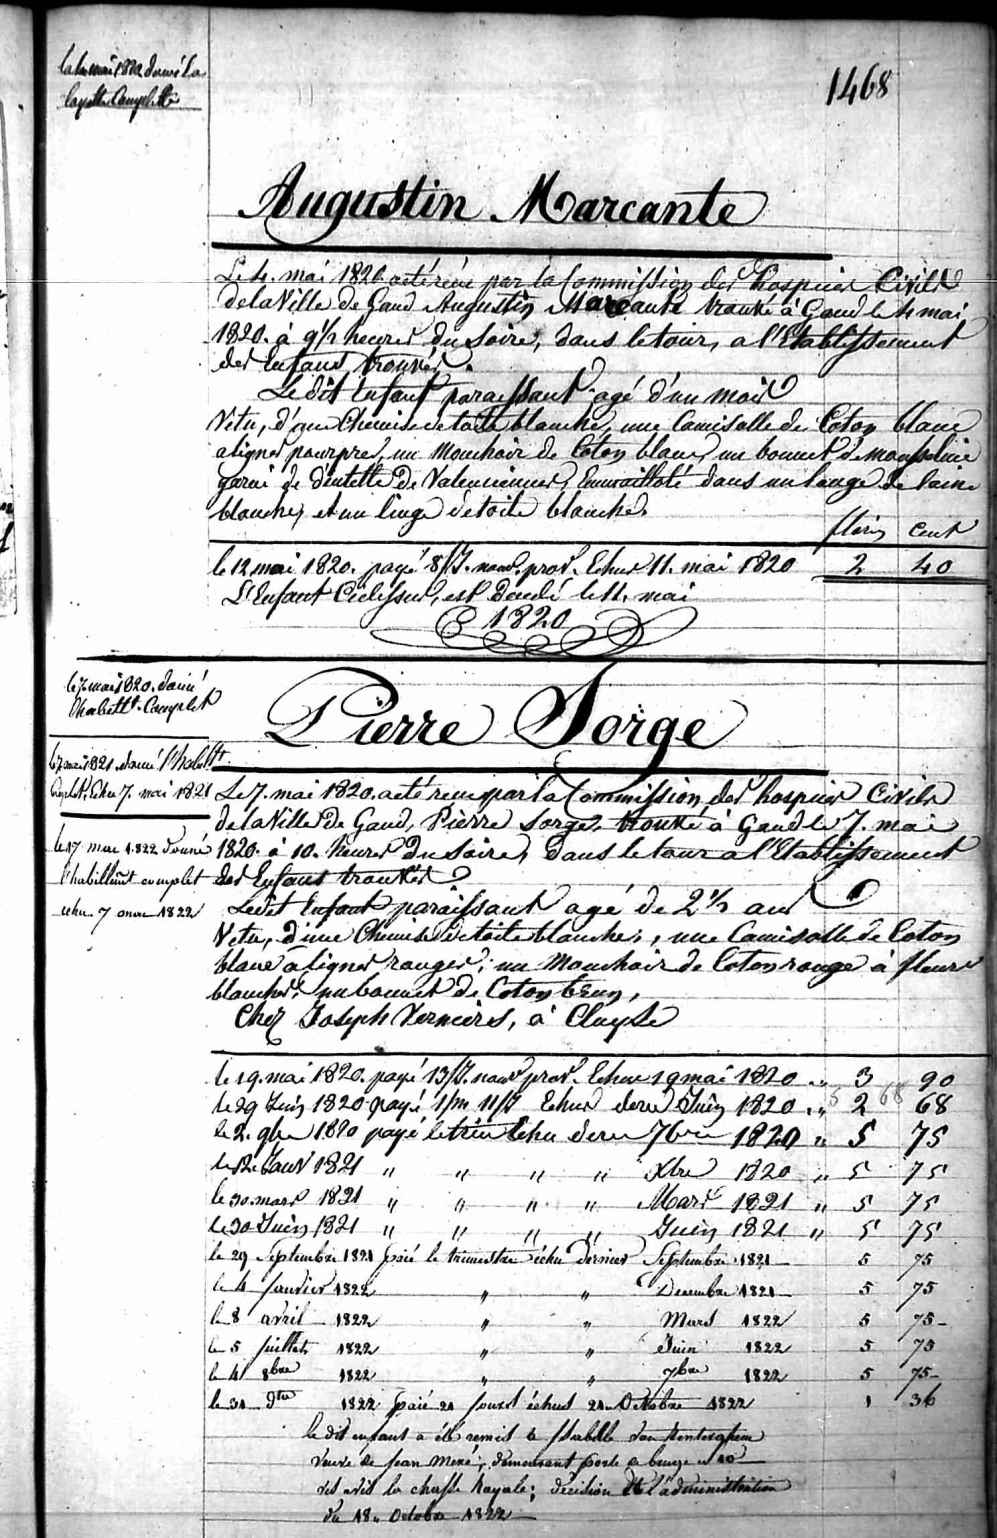 le 4 mai 1820 donné la
layette Complette
1468
Augustin Marcante
Le 4. mai 1820. a été reçu par la Commission des hospices Civils
de la Ville de Gand Augustin Marcante trouvé à Gand le 4 mai
1820. à 9 1/2 heures du soire, dans le tour, a l'Etablissement
des Enfans trouvés.
Le dit Enfant paraissant agé d'un mois
Vetu, d'une Chemise de toile blanche, une Camisolle de Coton blanc
a lignes pourpres, un Mouchoir de Coton blanc, un bonnet de mousseline
garni de dentelle de Valenciennes, Emmailloté dans un lange de laine
blanche, et un linge de toile blanche.
florins cent
le 12 mai 1820. payé 8/J. nouv. prov. Echus 11. mai 1820 2 40
L'Enfant Cidessus, est décédé le 11. mai
1820
le 7 mai 1820. donné
l'habillt. Complet
Pierre Sorge
le 7 mai 1821. donné l'habillt.
Complet, Echu 7. mai 1821
Le 7. mai 1820. a été reçu par la Commission des hospices Civils
de la Ville de Gand, Pierre Sorge, trouvé à Gand le 7. mai
le 17 mai 1822 donné
1820. à 10. heures du soire, dans le tour a l'Etablissement
l'habillemt complet
des Enfans trouvés
echu 7 mai 1822
Le dit Enfant paraissant agé de 2 1/2 ans
Vetu, d'une Chemise de toile blanche, une Camisolle de Coton
blanc à lignes rouges, un Mouchoir de Coton rouge à fleurs
blanches, un bonnet de Coton brun,
Chez Joseph Vernieres, à Cluyse
le 19. mai 1820. payé 13/J. nouv. prov. Echus 19 mai 1820 " 3 90
le 29 Juin 1820 payé 1/m 11/J Echus dern Juin 1820 " 2 68
le 2. 9bre 1820 payé le trim Echu dern 7bre 1820 " 5 75
le 12 Janv 1821 " " " " Xbre 1820 " 5 75
le 30 mars 1821 " " " " Mars 1821 " 5 75
le 30 Juin 1821 " " " " Juin 1821 " 5 75
le 29 Septembre 1821 paié le trimestre échu dernier Septembre 1821 5 75
le 4 janvier 1822 " " Decembre 1821 5 75
le 8 avril 1822 " " Mars 1822 5 75
le 5 juillet 1822 " " Juin 1822 5 75
le 4 8bre 1822 " " 7bre 1822 5 75
le 31 1822 paié 21 jours échus 21 Octobre 1822 1 36
le dit enfant a été remis à
veuve de Jean demeurant porte a
vis avis la chasse Royale; décision de l'administration
du 18 Octobre 1822